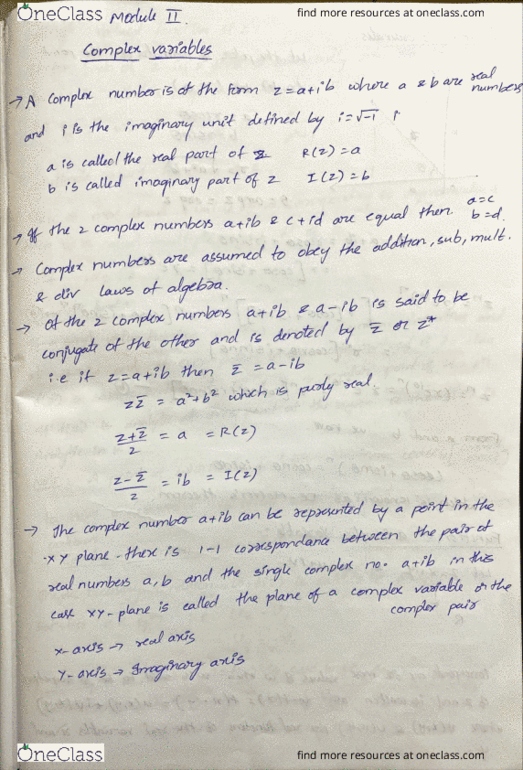 OneClass
find more resources at oneclass.com
Module II.
Complex variables
→ A Complex number is of the form z = a+ib where a & b are real numbers
and i is the imaginary unit defined by i=√-1
a is called the real part of z R(z) = a
b is called imaginary part of z I(z) = b
→ If the 2 complex numbers a+ib & c+id are equal then a=c b=d.
→ Complex numbers are assumed to obey the addition, sub, mult.
& div laws of algebra.
→ Of the 2 complex numbers a+ib & a-ib is said to be
conjugate of the other and is denoted by z̅ or z*
i.e if z=a+ib then z̅ = a-ib
zz̅ = a²+b² which is purly real.
z+z̅/2 = a = R(z)
z-z̅/2 = ib = I(z)
→ The complex number a+ib can be represented by a point in the
xy plane. there is 1-1 correspondance between the pair of
real numbers a,b and the single complex no. a+ib in this
case xy-plane is called the plane of a complex variable or the
complex pair
x-axis → real axis
y-axis → Imaginary axis
OneClass
find more resources at oneclass.com